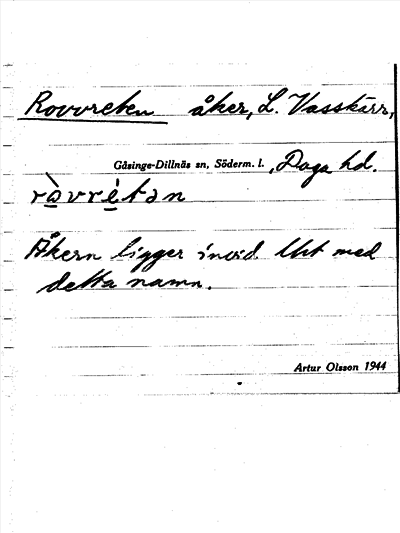 Rovvreten åker, L. Vasskärr,
Gåsinge-Dillnäs sn, Söderm. l., Daga hd.
ràvrétan
Åkern ligger invid
med
detta namn.
Artur Olsson 1944